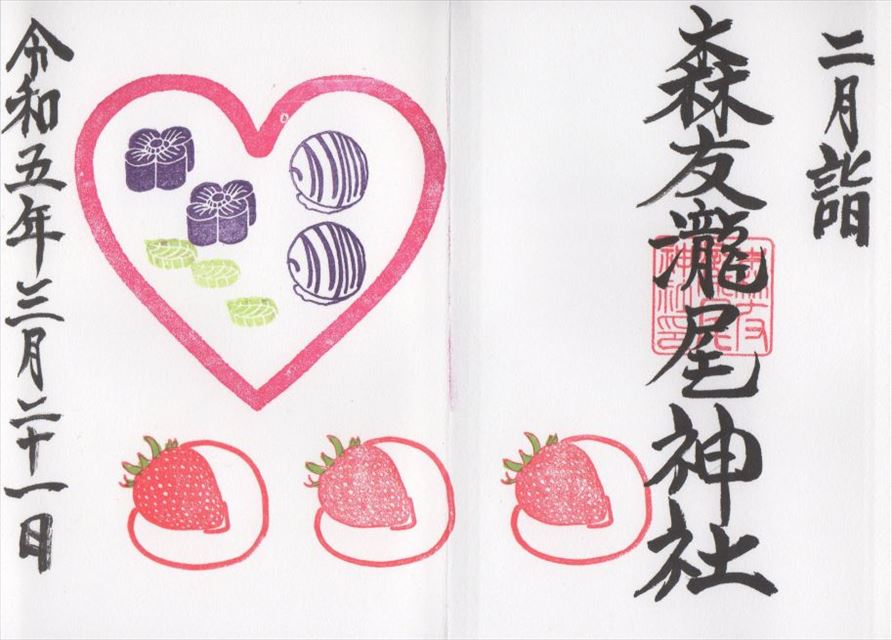 二月詣
森友瀧尾神社
令和五年三月二十一日